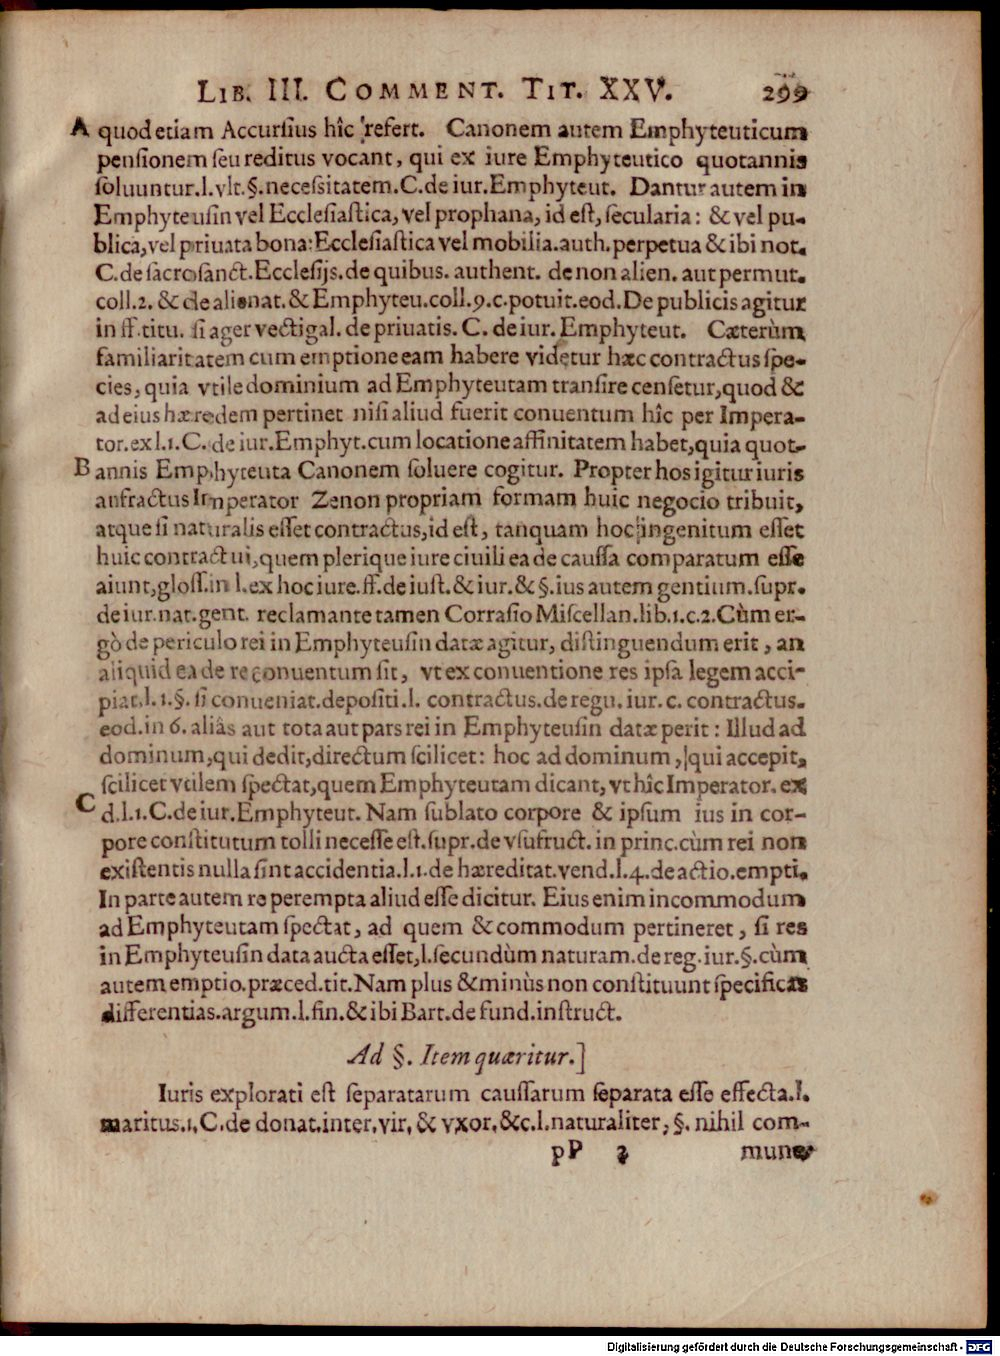 LIB. III. COMMENT. TIT. XXV. 299
A quod etiam Accursius hîc refert. Canonem autem Emphyteuticum
pensionem seu reditus vocant, qui ex iure Emphyteutico quotannis
soluuntur.l.vlt.§.necessitatem.C.de iur.Emphyteut. Dantur autem in
Emphyteusin vel Ecclesiastica, vel prophana, id est, secularia: & vel pu-
blica, vel priuata bona: Ecclesiastica vel mobilia.auth.perpetua & ibi not.
C.de sacrosanct.Ecclesijs.de quibus. authent. de non alien. aut permut.
coll.2. & de alienat. & Emphyteu.coll.9.c.potuit.eod.De publicis agitur
in ff.titu. si ager vectigal. de priuatis. C. de iur. Emphyteut. Cæterùm
familiaritatem cum emptione eam habere videtur hæc contractus spe-
cies, quia vtile dominium ad Emphyteutam transire censetur, quod &
ad eius hæredem pertinet nisi aliud fuerit conuentum hîc per Impera-
tor.ex l.1.C. de iur.Emphyt.cum locatione affinitatem habet, quia quot-
B annis Emphyteuta Canonem soluere cogitur. Propter hos igitur iuris
anfractus Imperator Zenon propriam formam huic negocio tribuit,
atque si naturalis esset contractus, id est, tanquam hoc ingenitum esset
huic contractui, quem plerique iure ciuili ea de caussa comparatum esse
aiunt, gloss.in l.ex hoc iure.ff.de iust.& iur.& §.ius autem gentium.supr.
de iur.nat.gent. reclamante tamen Corrasio Miscellan.lib.1.c.2.Cùm er-
gò de periculo rei in Emphyteusin datæ agitur, distinguendum erit, an
aliquid ea de re conuentum sit, vt ex conuentione res ipsa legem acci-
piat.l.1.§. si conueniat.depositi.l. contractus.de regu. iur. c. contractus.
eod.in 6. aliàs aut tota aut pars rei in Emphyteusin datæ perit: Illud ad
dominum, qui dedit, directum scilicet: hoc ad dominum, qui accepit,
scilicet vtilem spectat, quem Emphyteutam dicant, vt hîc Imperator. ex
C d.l.1.C.de iur.Emphyteut. Nam sublato corpore & ipsum ius in cor-
pore constitutum tolli necesse est.supr.de vsufruct. in princ.cùm rei non
existentis nulla sint accidentia.l.1.de hæreditat.vend.l.4.de actio.empti.
In parte autem re perempta aliud esse dicitur. Eius enim incommodum
ad Emphyteutam spectat, ad quem & commodum pertineret, si res
in Emphyteusin data aucta esset, l.secundùm naturam.de reg.iur.§.cùm
autem emptio.præced.tit.Nam plus & minùs non constituunt specificas
differentias.argum.l.fin.& ibi Bart.de fund.instruct.
Ad §. Item quæritur.]
Iuris explorati est separatarum caussarum separata esse effecta.l.
maritus.1.C.de donat.inter.vir, & vxor.&c.l.naturaliter, §. nihil com-
pP 2 mune
Digitalisierung gefördert durch die Deutsche Forschungsgemeinschaft - DFG